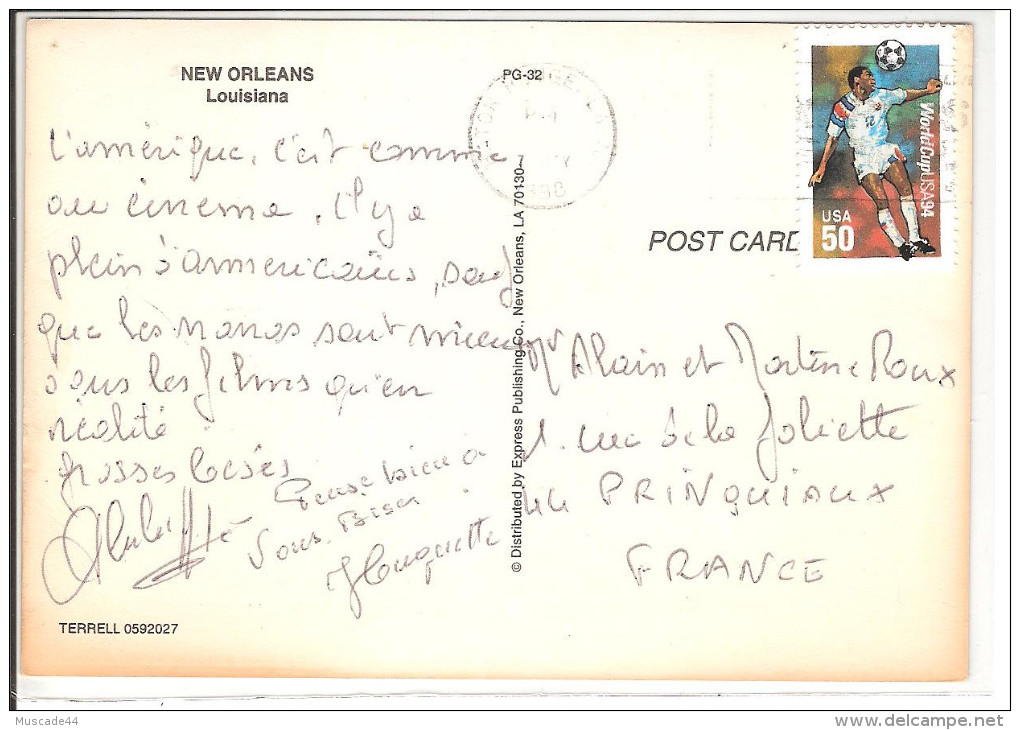 NEW ORLEANS
Louisiana
PG-32
L'amérique, c'est comme
au cinema, il y a
plein d'americains, sauf
que les nanas sont mieux
dans les films qu'en
réalité
grosses bises
Pense bien à
vous. Bises
Huguette
TERRELL 0592027
© Distributed by Express Publishing Co., New Orleans, LA 70130
POST CARD
WorldCupUSA94
USA
50
Mr Alain et Martine Roux
1. rue de la Joliette
44 PRINQUIAUX
FRANCE
Muscade44
www.delcampe.net